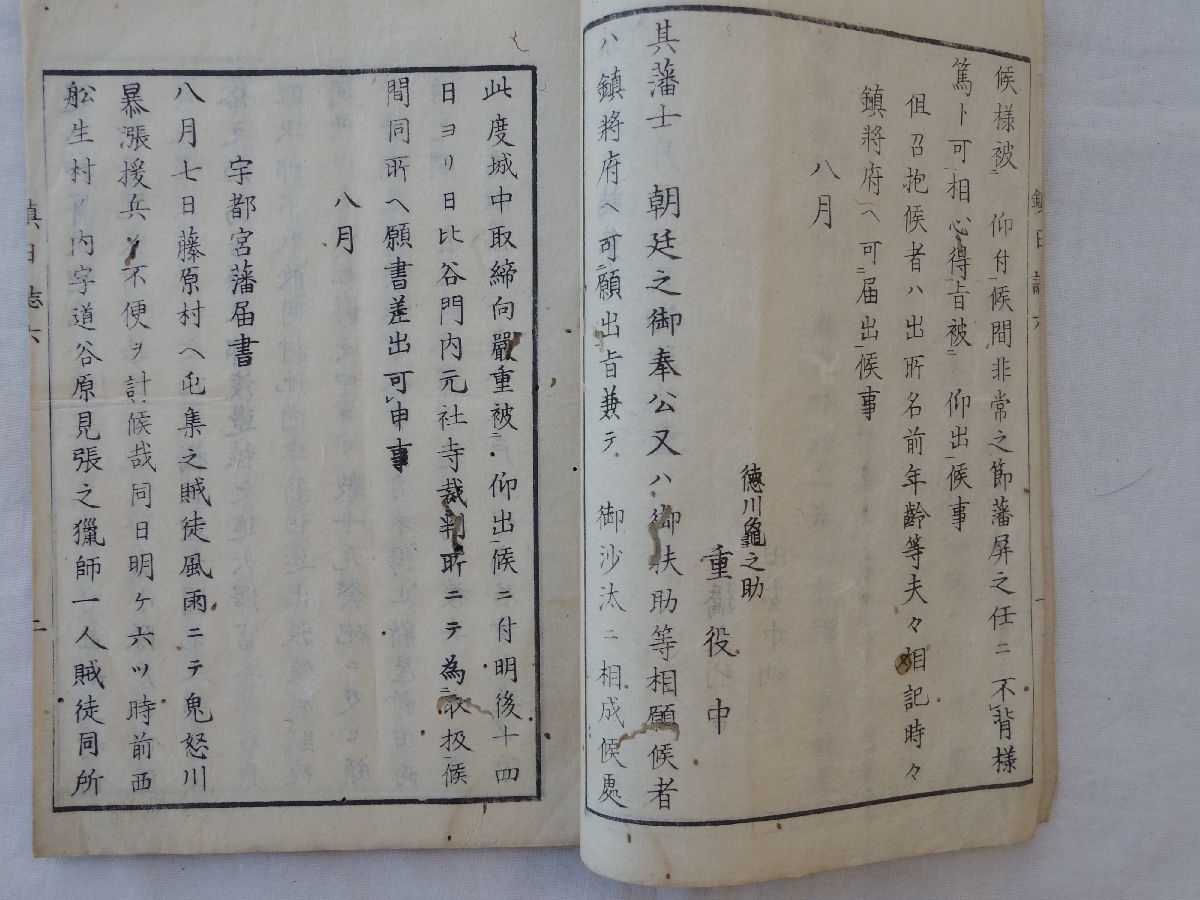 候様被㆓ 仰付㆒候間非常之節藩屏之任ニ不㆑背様
篤ト可㆓相心得㆒旨被㆓ 仰出㆒候事
但召抱候者ハ出所名前年齢等夫々相記時々
鎮將府ヘ可㆓届出㆒候事
八月
德川龜之助
重役中
其藩士 朝廷之御奉公又ハ御扶助等相願候者
ハ鎮將府ヘ可㆓願出㆒旨兼テ 御沙汰ニ相成候處
此度城中取締向嚴重被㆓ 仰出㆒候ニ付明後十四
日ヨリ日比谷門内元社寺裁判所ニテ為㆓取扱㆒候
間同所ヘ願書差出可㆑申事
八月
宇都宮藩届書
八月七日藤原村ヘ屯集之賊徒風雨ニテ鬼怒川
暴漲援兵ノ不便ヲ計候哉同日明ケ六ツ時前西
舩生村ノ内字道谷原見張之獵師一人賊徒同所
鎮日誌六
二